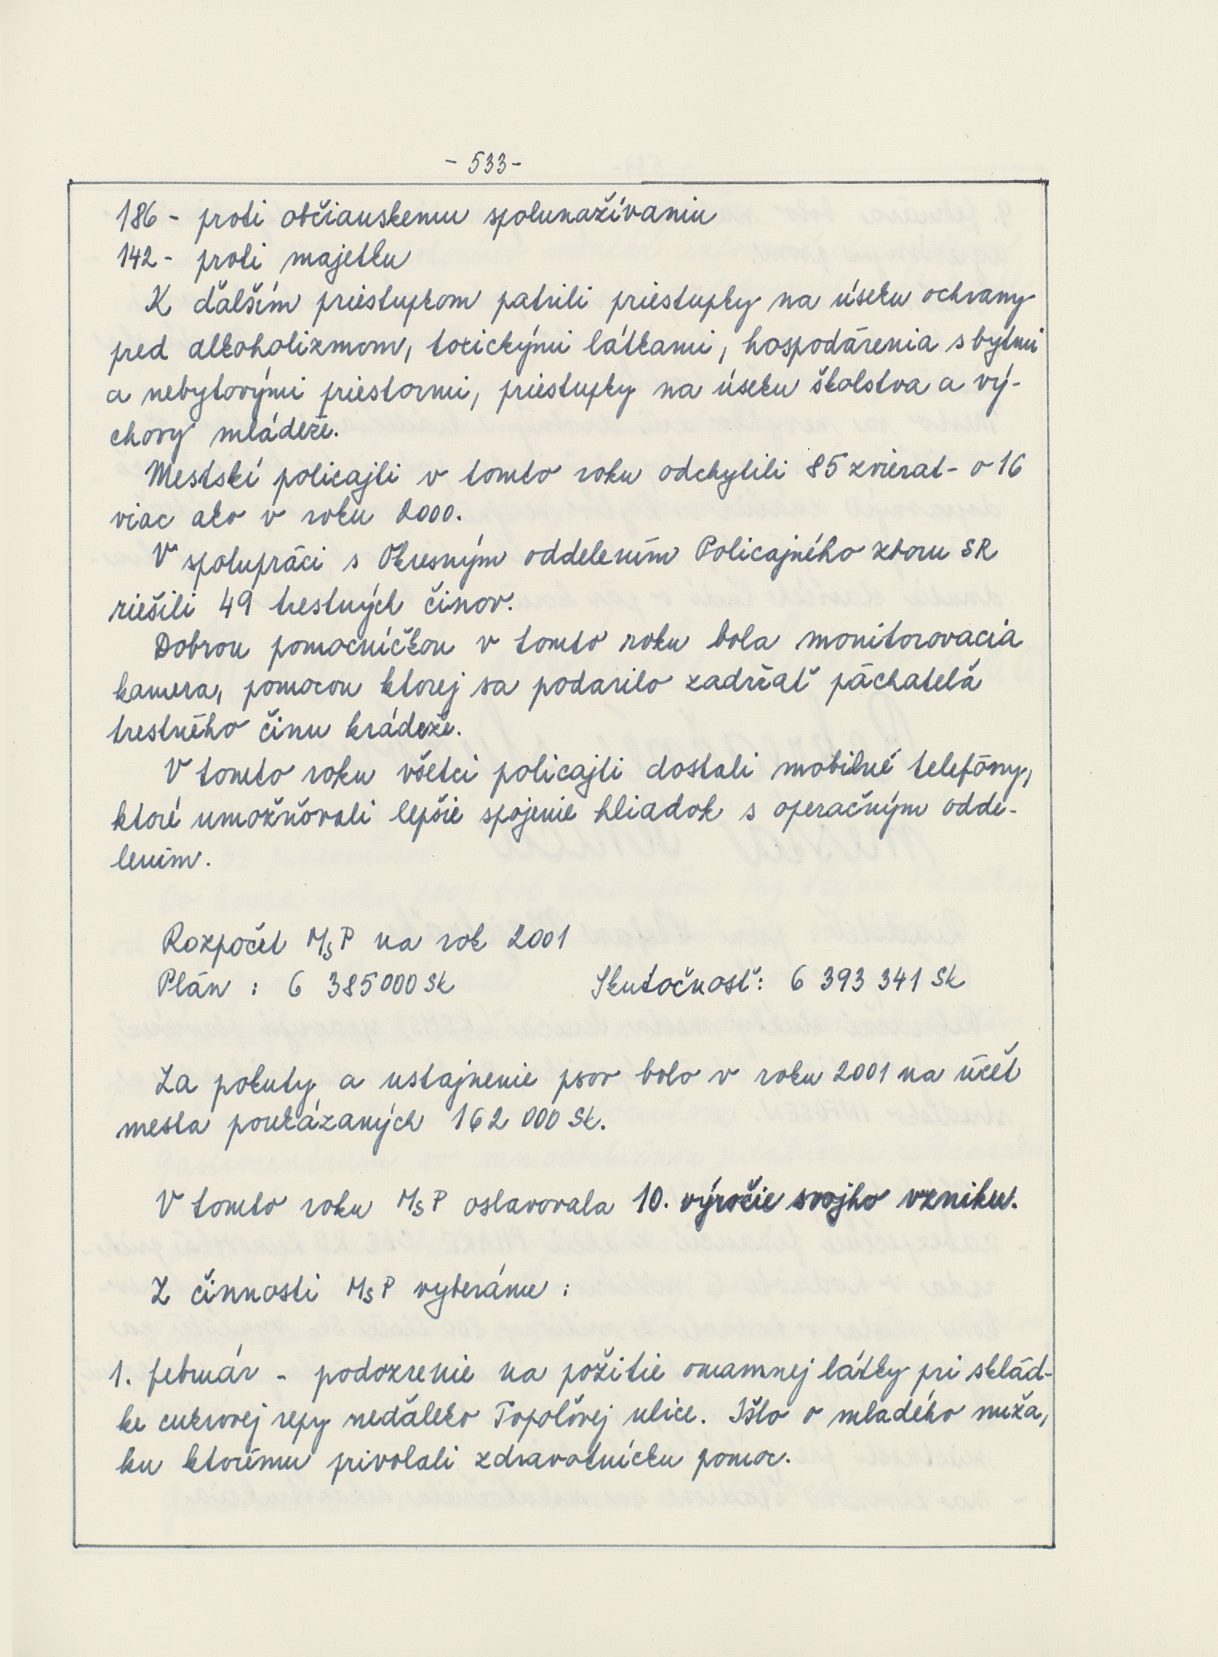 - 533 -
186 - proti občianskemu spolunažívaniu
142 - proti majetku
K ďalším priestupkom patrili priestupky na úseku ochrany
pred alkoholizmom, toxickými látkami, hospodárenia s bytmi
a nebytovými priestormi, priestupky na úseku školstva a vý-
chovy mládeže.
Mestskí policajti v tomto roku odchytili 85 zvierat - o 16
viac ako v roku 2000.
V spolupráci s Okresným oddelením Policajného zboru SR
riešili 49 trestných činov.
Dobrou pomocníčkou v tomto roku bola monitorovacia
kamera, pomocou ktorej sa podarilo zadržať páchateľa
trestného činu krádeže.
V tomto roku všetci policajti dostali mobilné telefóny,
ktoré umožňovali lepšie spojenie hliadok s operačným odde-
lením.
Rozpočet MsP na rok 2001
Plán : 6 385 000 Sk Skutočnosť: 6 393 341 Sk
Za pokuty a ustajnenie psov bolo v roku 2001 na účet
mesta poukázaných 162 000 Sk.
V tomto roku MsP oslavovala 10. výročie svojho vzniku.
Z činnosti MsP vyberáme :
1. február - podozrenie na požitie omamnej látky pri sklád-
ke cukrovej repy neďaleko Topoľovej ulice. Išlo o mladého muža,
ku ktorému privolali zdravotnícku pomoc.